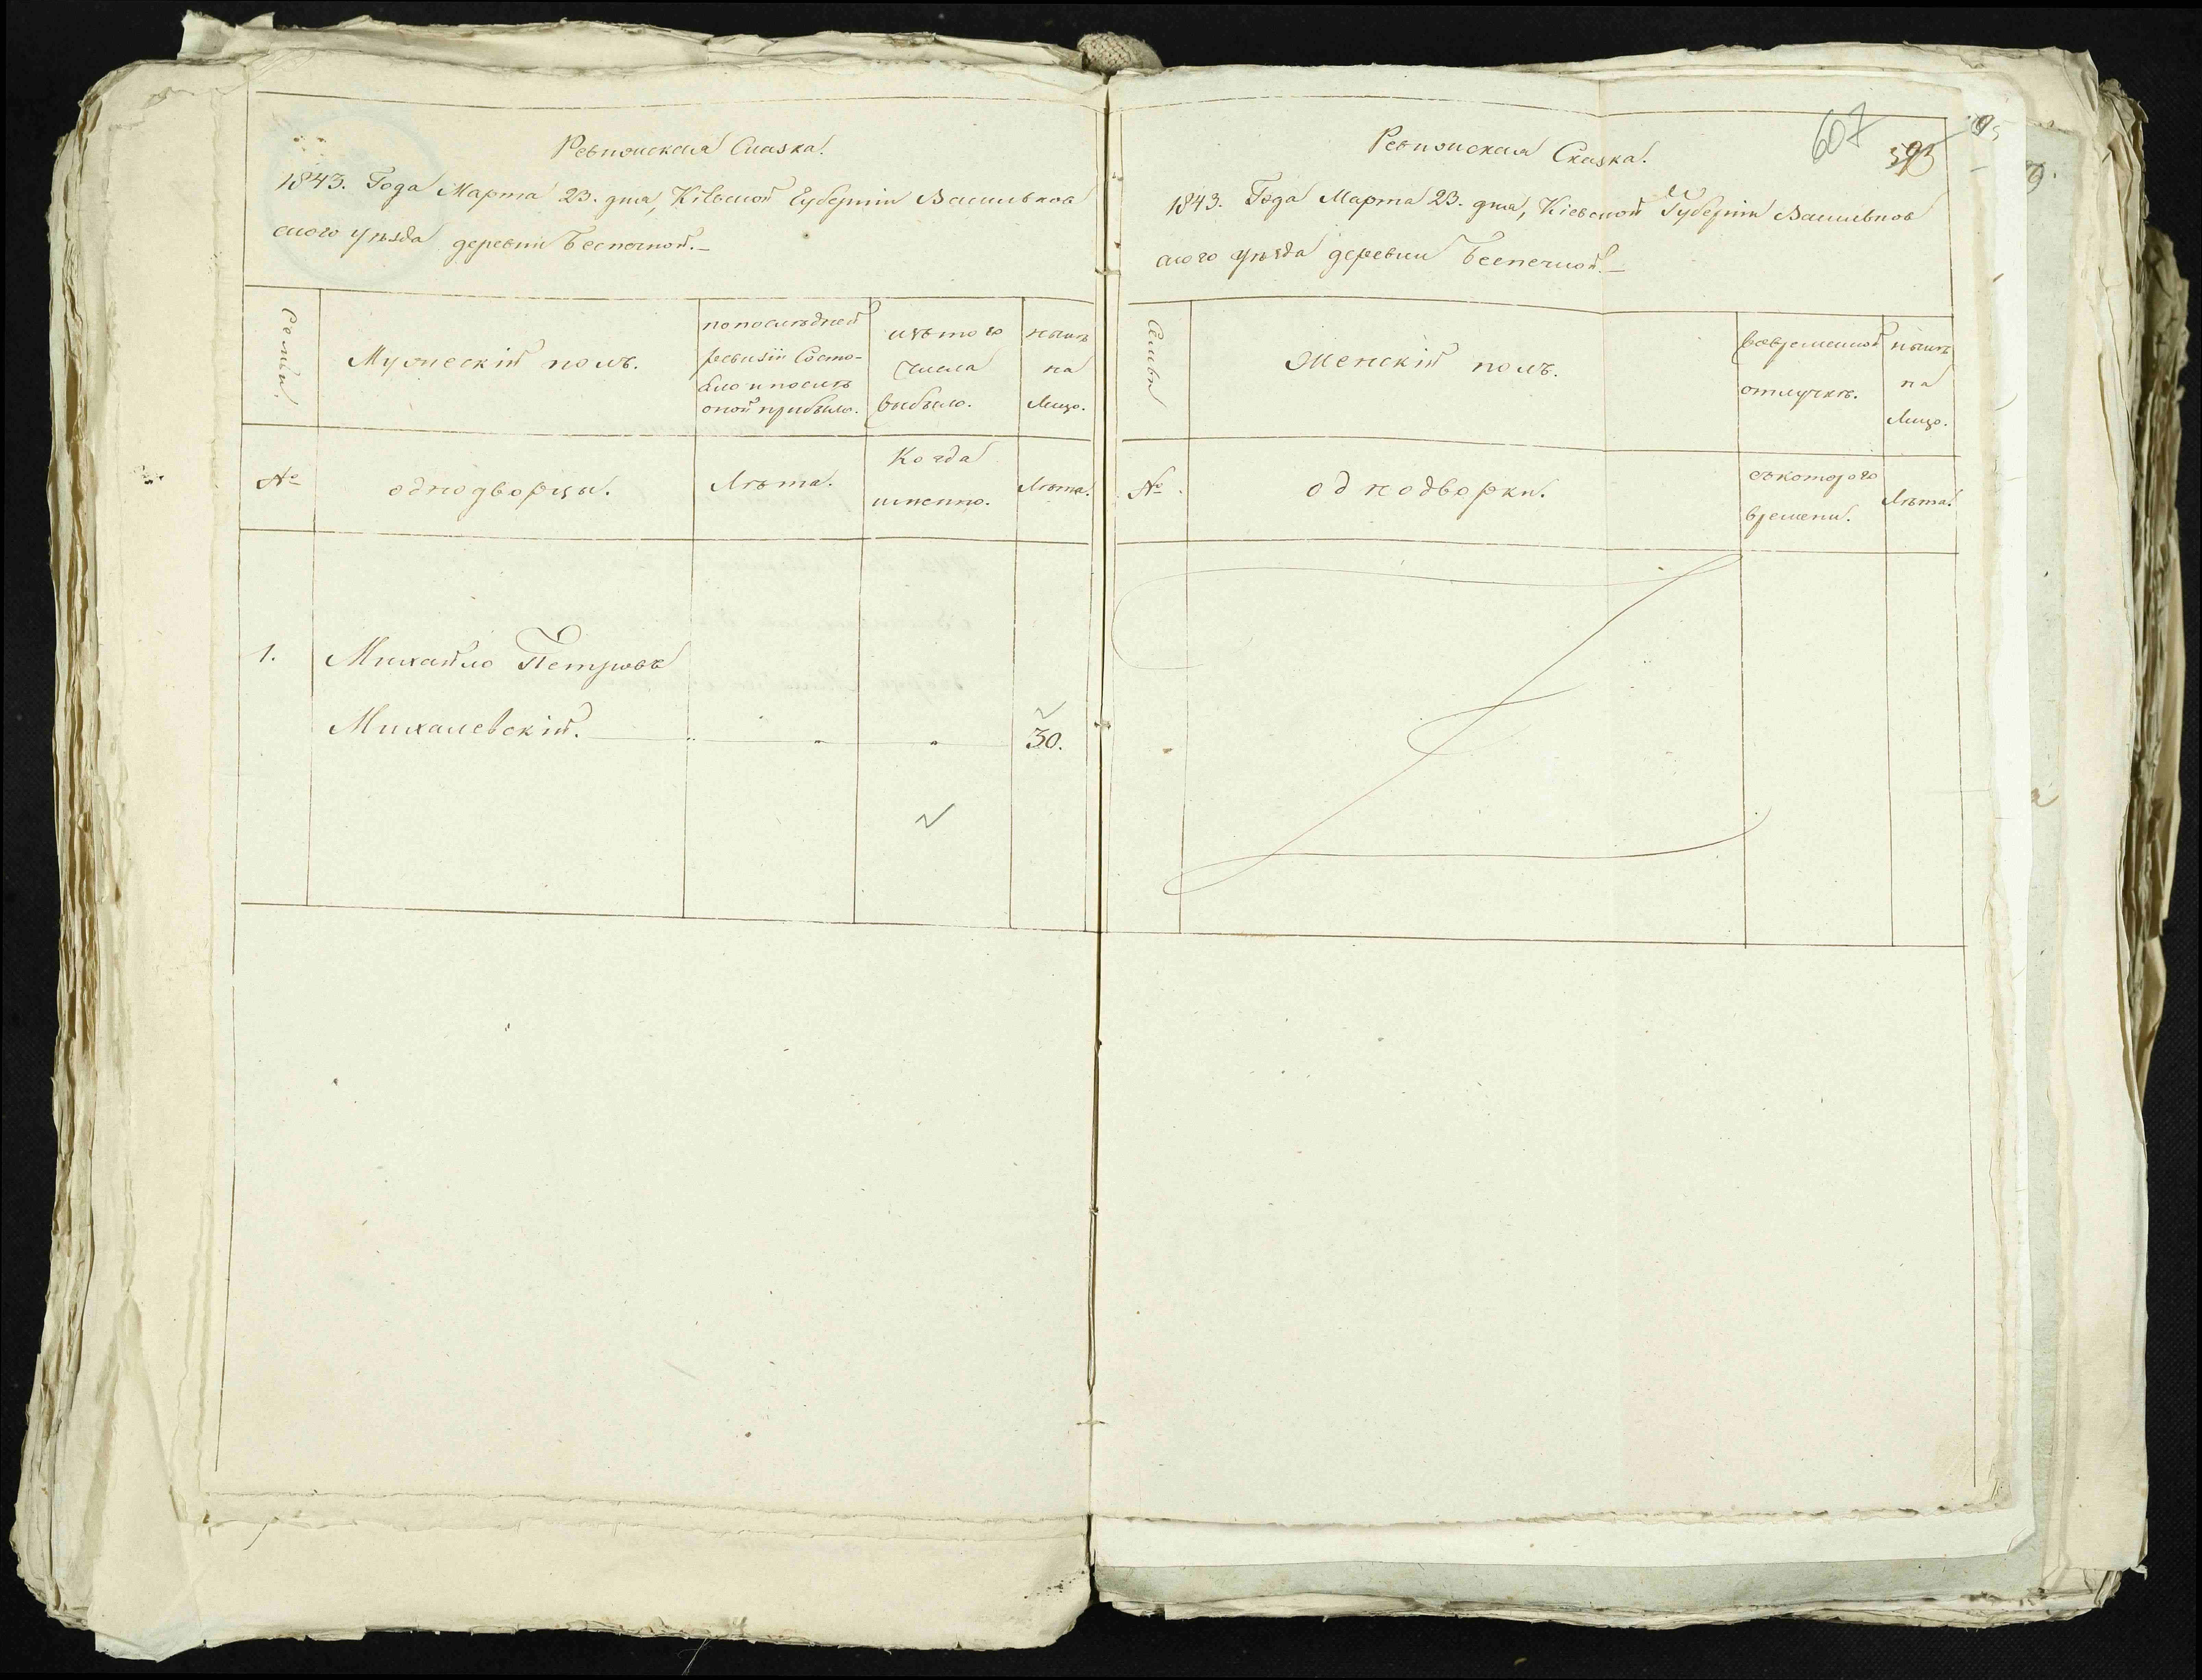 Ревизская Сказка.
1843. Года Марта 23. дня, Кіевской Губерніи Васильков
ского уѣзда деревни Беспечной.—
Семьи.
Мужескій полъ.
по послѣдней
ревизіи Состо-
яло и послѣ
оной прибыло.
изъ того
числа
выбыло.
нынѣ
на
Лицо.
№
однодворцы.
Лѣта.
Когда
именно.
Лѣта.
1.
Михайло Петровъ
Михалевскій.
30.
607
593
95
Ревизская Сказка.
1843. Года Марта 23. дня, Кіевской Губерніи Васильков
ского уѣзда деревни Беспечной.—
Семьи
Женскій полъ.
во временной
отлучкѣ.
нынѣ
на
Лицо.
№.
однодворки.
съ которого
времени.
Лѣта.